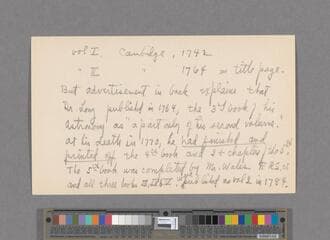 vol I. Cambridge, 1742
" II " 1764 on title page.
But advertisement in book explains that
Dr. Long published in 1764, the 3d book of his
astronomy as "a part only of his second volume."
At his death in 1770, he had finished and
printed off the 4th book and 2 chapters of the 5th.
The 5th book was completed by Mr. Wales F.R.S.
and all three books published as vol 2 in 1784.